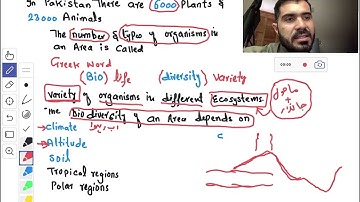 In Pakistan There are 6000 Plants &
23000 Animals
The number & types of organisms in
an Area is Called
Greek word
(Bio) life (diversity) variety
variety of organisms in different Ecosystems
The biodiversity of an Area depends on
ماحول
+
جاندار
Climate آب و ہوا
Altitude
Soil
Tropical regions
Polar regions